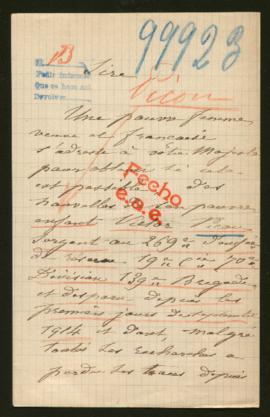 B
99923
Pedir informes
Que se haga
Devolver
Sire
Picou
Une pauvre femme
veuve et française
s'adresse à votre Majesté
pour obtenir si cela
est possible des
nouvelles de son pauvre
enfant Victor Picou
Fecho
Sergent au 269e
19e Cie 70e
Division 139e Brigade
et disparu depuis les
premiers jours de septembre
1914 et dont, malgré
toutes les recherches a
perdu les traces depuis